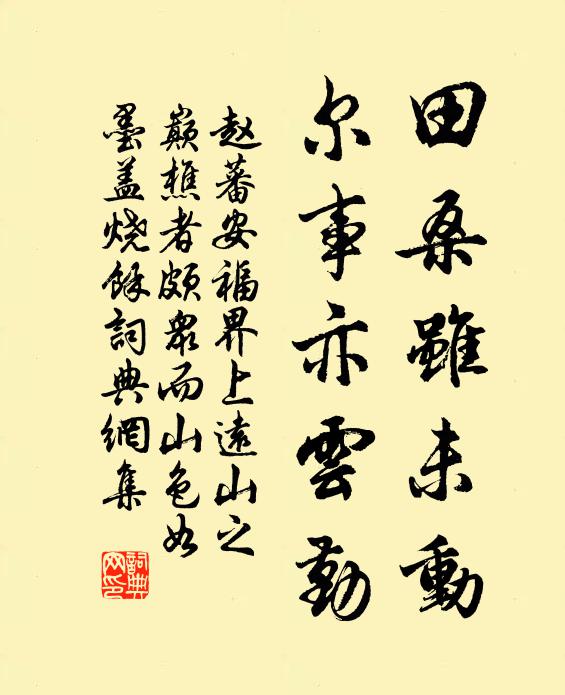 田桑雖未動
尔事亦雲勤
赵蕃安福界上遠山之
巔樵者頗衆而山色如
墨盖烧餘詞典網集
詞典
网印